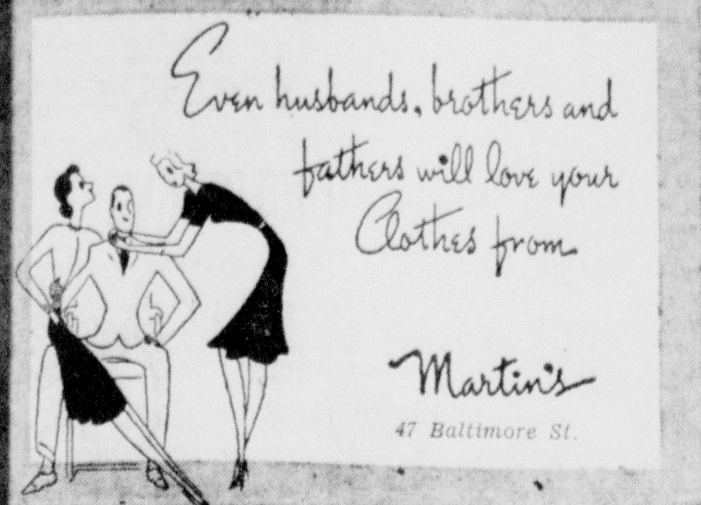 Even husbands, brothers and
fathers will love your
Clothes from
Martin's
47 Baltimore St.